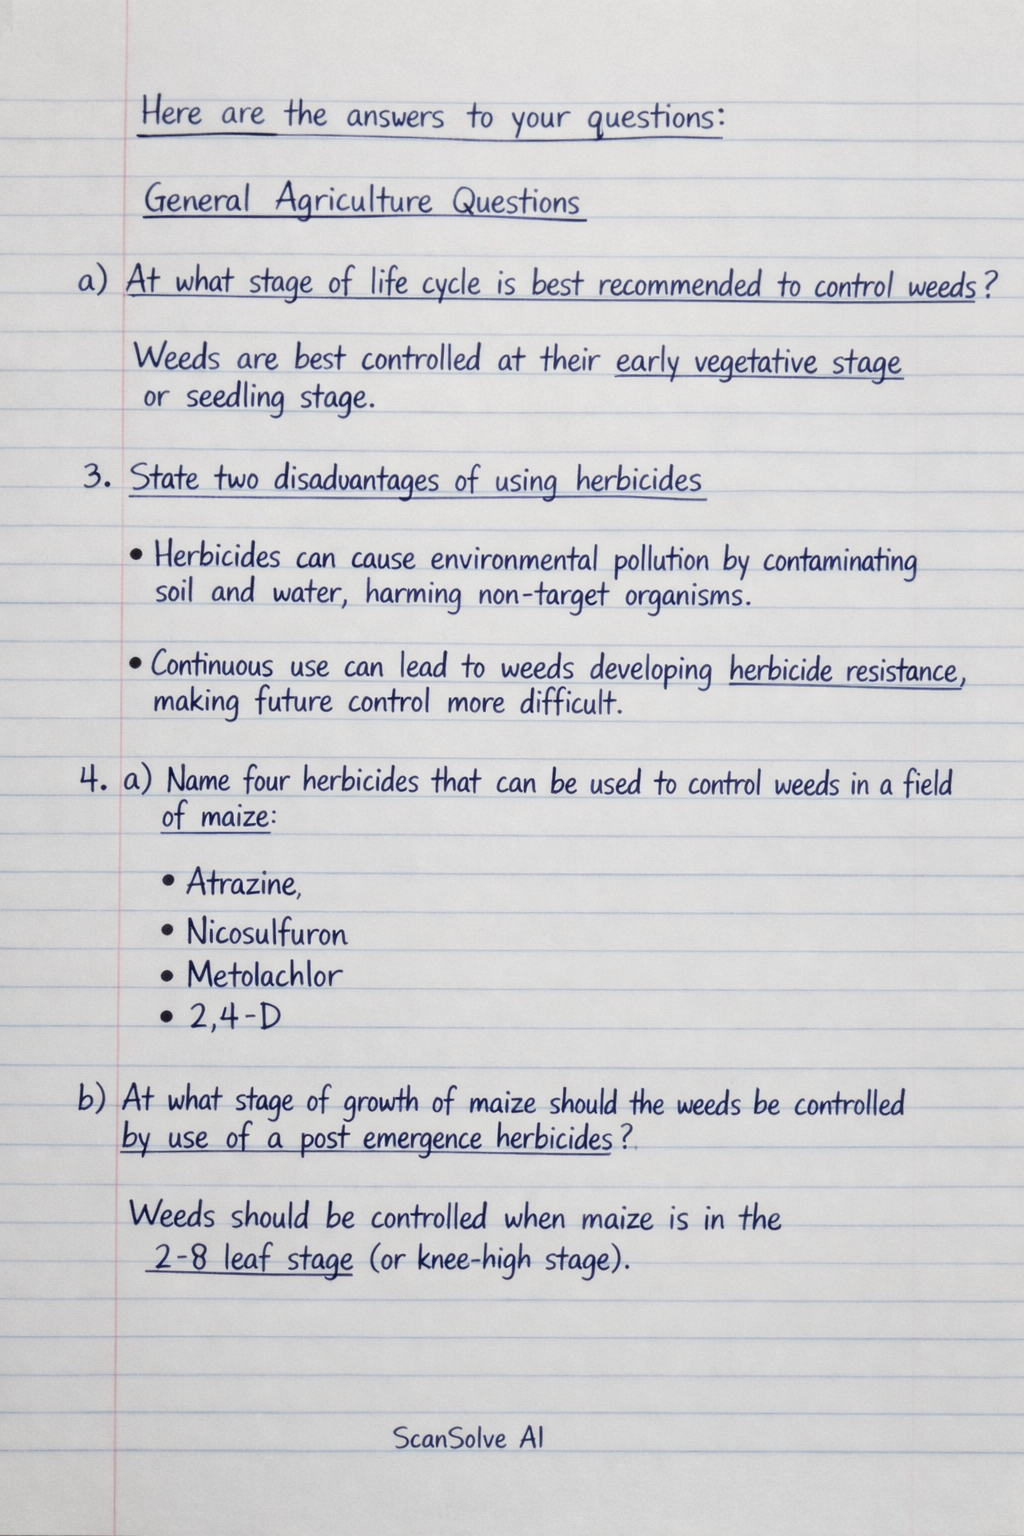 Here are the answers to your questions:
General Agriculture Questions
a) At what stage of life cycle is best recommended to control weeds?
Weeds are best controlled at their early vegetative stage
or seedling stage.
3. State two disadvantages of using herbicides
• Herbicides can cause environmental pollution by contaminating
soil and water, harming non-target organisms.
• Continuous use can lead to weeds developing herbicide resistance,
making future control more difficult.
4. a) Name four herbicides that can be used to control weeds in a field
of maize:
• Atrazine,
• Nicosulfuron
• Metolachlor
• 2,4-D
b) At what stage of growth of maize should the weeds be controlled
by use of a post emergence herbicides?
Weeds should be controlled when maize is in the
2-8 leaf stage (or knee-high stage).
ScanSolve AI